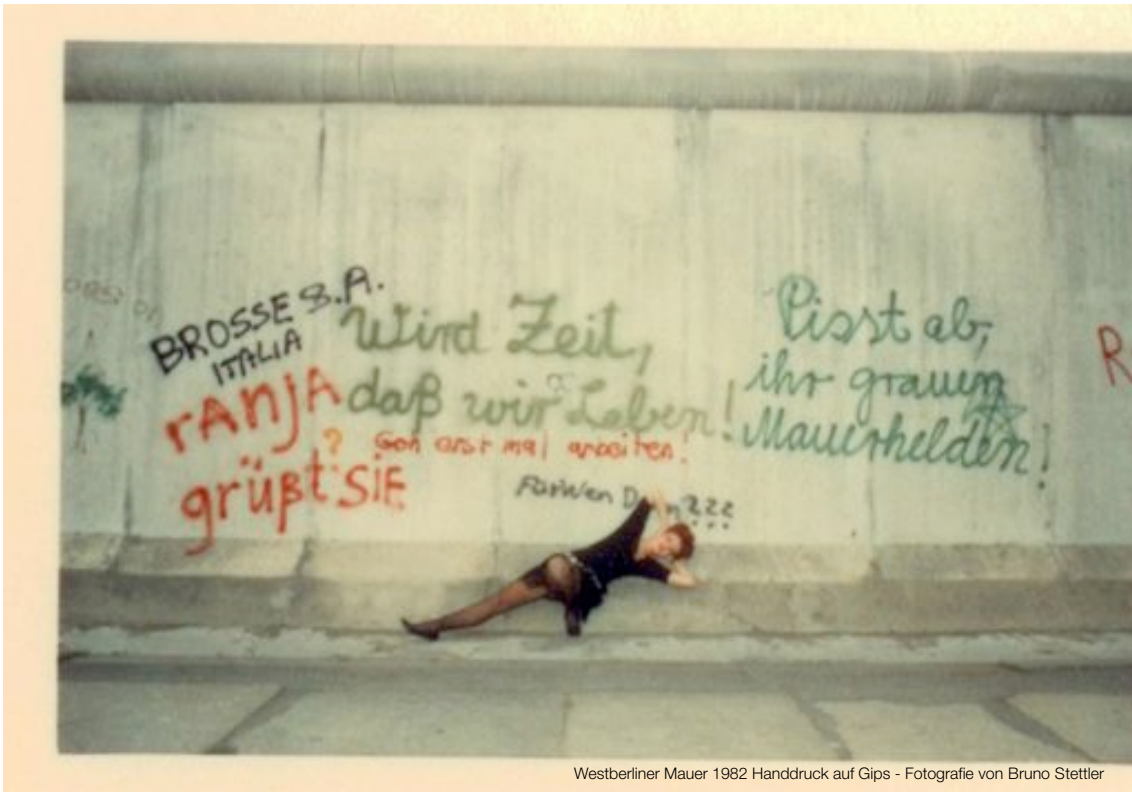 BROSSE S.A.
ITALIA
rANJA
grüßt SiE
?
Wird Zeit,
daß wir Leben!
Geh erst mal arbeiten!
Für Wen D n???
Pisst ab,
ihr grauen
Mauerhelden!
R
Westberliner Mauer 1982 Handdruck auf Gips - Fotografie von Bruno Stettler